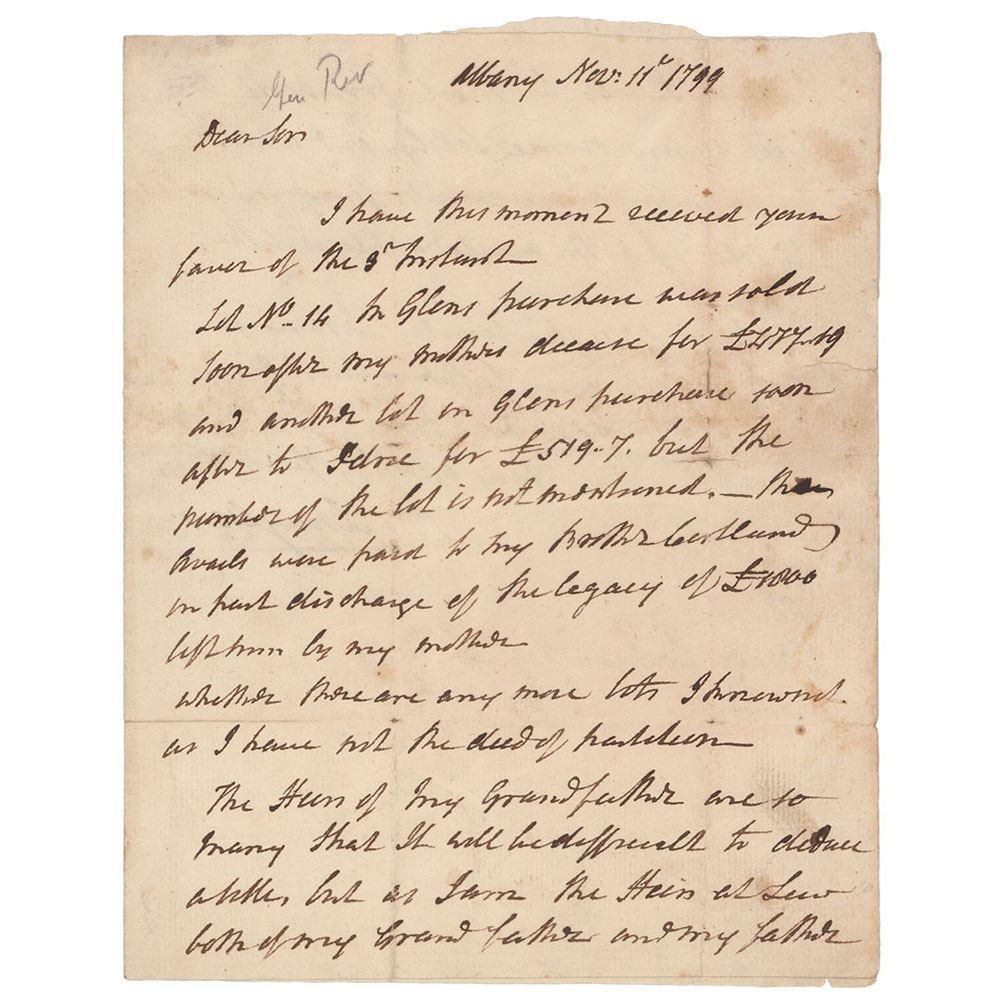 Gen Rev
Albany Nov: 11th 1799
Dear Sir
I have this moment received your
favor of the 3d Instant
Lot No. 14 In Glens purchase was sold
soon after my mothers decease for £477.19
and another lot in Glens purchase soon
after to for £519.7. but the
number of the lot is not mentioned. — the
avails were paid to my Brother Cortland
in part discharge of the legacy of £1800
left him by my mother
whether there are any more lots I know not
as I have not the deed of partition
The Heirs of my Grandfather are so
many that It will be difficult to deduce
a title, but as I am the Heir at Law
both of my Grand father and my father